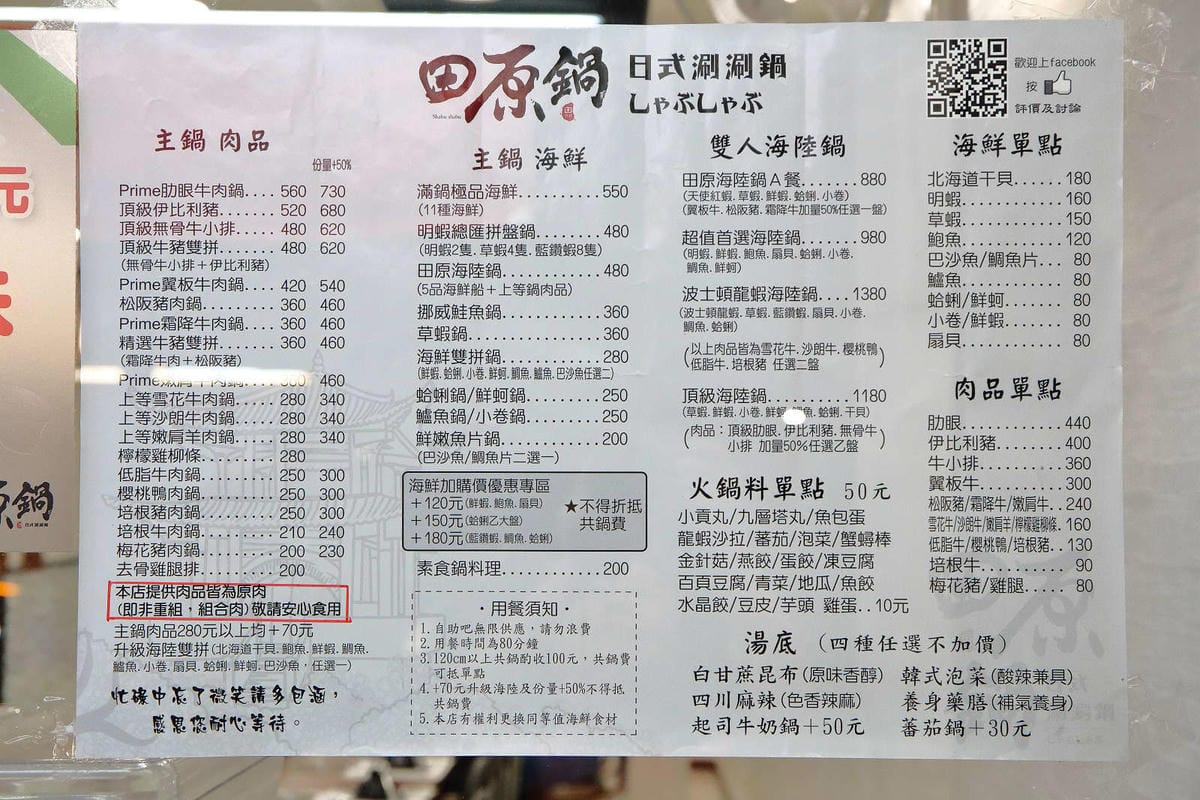 元
田原鍋
Shabu shabu
日式涮涮鍋
しゃぶしゃぶ
歡迎上facebook
按
評價及討論
主鍋 肉品
份量+50%
Prime肋眼牛肉鍋.... 560 730
頂級伊比利豬....... 520 680
頂級無骨牛小排..... 480 620
頂級牛豬雙拼....... 480 620
(無骨牛小排+伊比利豬)
Prime翼板牛肉鍋.... 420 540
松阪豬肉鍋......... 360 460
Prime霜降牛肉鍋.... 360 460
精選牛豬雙拼....... 360 460
(霜降牛肉+松阪豬)
Prime嫩肩牛肉鍋.... 360 460
上等雪花牛肉鍋..... 280 340
上等沙朗牛肉鍋..... 280 340
上等嫩肩羊肉鍋..... 280 340
檸檬雞柳條......... 280
低脂牛肉鍋......... 250 300
櫻桃鴨肉鍋......... 250 300
培根豬肉鍋......... 250 300
培根牛肉鍋......... 210 240
梅花豬肉鍋......... 200 230
去骨雞腿排......... 200
本店提供肉品皆為原肉
(即非重組，組合肉)敬請安心食用
主鍋肉品280元以上均+70元
升級海陸雙拼(北海道干貝.鮑魚.鮮蝦.鯛魚.
鱸魚.小卷.扇貝.蛤蜊.鮮蚵.巴沙魚，任選一)
忙碌中忘了微笑請多包涵，
感恩您耐心等待。
主鍋 海鮮
滿鍋極品海鮮........550
(11種海鮮)
明蝦總匯拼盤鍋......480
(明蝦2隻.草蝦4隻.藍鑽蝦8隻)
田原海陸鍋..........480
(5品海鮮船+上等鍋肉品)
挪威鮭魚鍋..........360
草蝦鍋..............360
海鮮雙拼鍋..........280
(鮮蝦.蛤蜊.小卷.鮮蚵.鯛魚.鱸魚.巴沙魚任選二)
蛤蜊鍋/鮮蚵鍋.......250
鱸魚鍋/小卷鍋.......250
鮮嫩魚片鍋..........200
(巴沙魚/鯛魚片二選一)
海鮮加購價優惠專區
+120元(鮮蝦.鮑魚.扇貝)
+150元(蛤蜊乙大盤)
+180元(藍鑽蝦.鯛魚.蛤蜊)
★不得折抵
共鍋費
素食鍋料理..........200
·用餐須知·
1.自助吧無限供應，請勿浪費
2.用餐時間為80分鐘
3.120cm以上共鍋酌收100元，共鍋費
可抵單點
4.+70元升級海陸及份量+50%不得抵
共鍋費
5.本店有權利更換同等值海鮮食材
雙人海陸鍋
田原海陸鍋A餐.......880
(天使紅蝦.草蝦.鮮蝦.蛤蜊.小卷)
(翼板牛.松阪豬.霜降牛加量50%任選一盤)
超值首選海陸鍋......980
(明蝦.鮮蝦.鮑魚.扇貝.蛤蜊.小卷.
鯛魚.鮮蚵)
波士頓龍蝦海陸鍋....1380
(波士頓龍蝦.草蝦.藍鑽蝦.扇貝.小卷.
鯛魚.蛤蜊)
(以上肉品皆為雪花牛.沙朗牛.櫻桃鴨
低脂牛.培根豬 任選二盤)
頂級海陸鍋..........1180
(草蝦.鮮蝦.小卷.鮮蚵.鮑魚.蛤蜊.干貝)
(肉品：頂級肋眼.伊比利豬.無骨牛
小排 加量50%任選乙盤)
火鍋料單點 50元
小貢丸/九層塔丸/魚包蛋
龍蝦沙拉/蕃茄/泡菜/蟹蟳棒
金針菇/燕餃/蛋餃/凍豆腐
百頁豆腐/青菜/地瓜/魚餃
水晶餃/豆皮/芋頭 雞蛋..10元
海鮮單點
北海道干貝...... 180
明蝦............ 160
草蝦............ 150
鮑魚............ 120
巴沙魚/鯛魚片... 80
鱸魚............ 80
蛤蜊/鮮蚵....... 80
小卷/鮮蝦....... 80
扇貝............ 80
肉品單點
肋眼............ 440
伊比利豬........ 400
牛小排.......... 360
翼板牛.......... 300
松阪豬/霜降牛/嫩肩牛.. 240
雪花牛/沙朗牛/嫩肩羊/檸檬雞柳條. 160
低脂牛/櫻桃鴨/培根豬.. 130
培根牛.......... 90
梅花豬/雞腿..... 80
湯底 (四種任選不加價)
白甘蔗昆布(原味香醇) 韓式泡菜(酸辣兼具)
四川麻辣(色香辣麻) 養身藥膳(補氣養身)
起司牛奶鍋+50元 蕃茄鍋+30元
原鍋
日式涮涮鍋